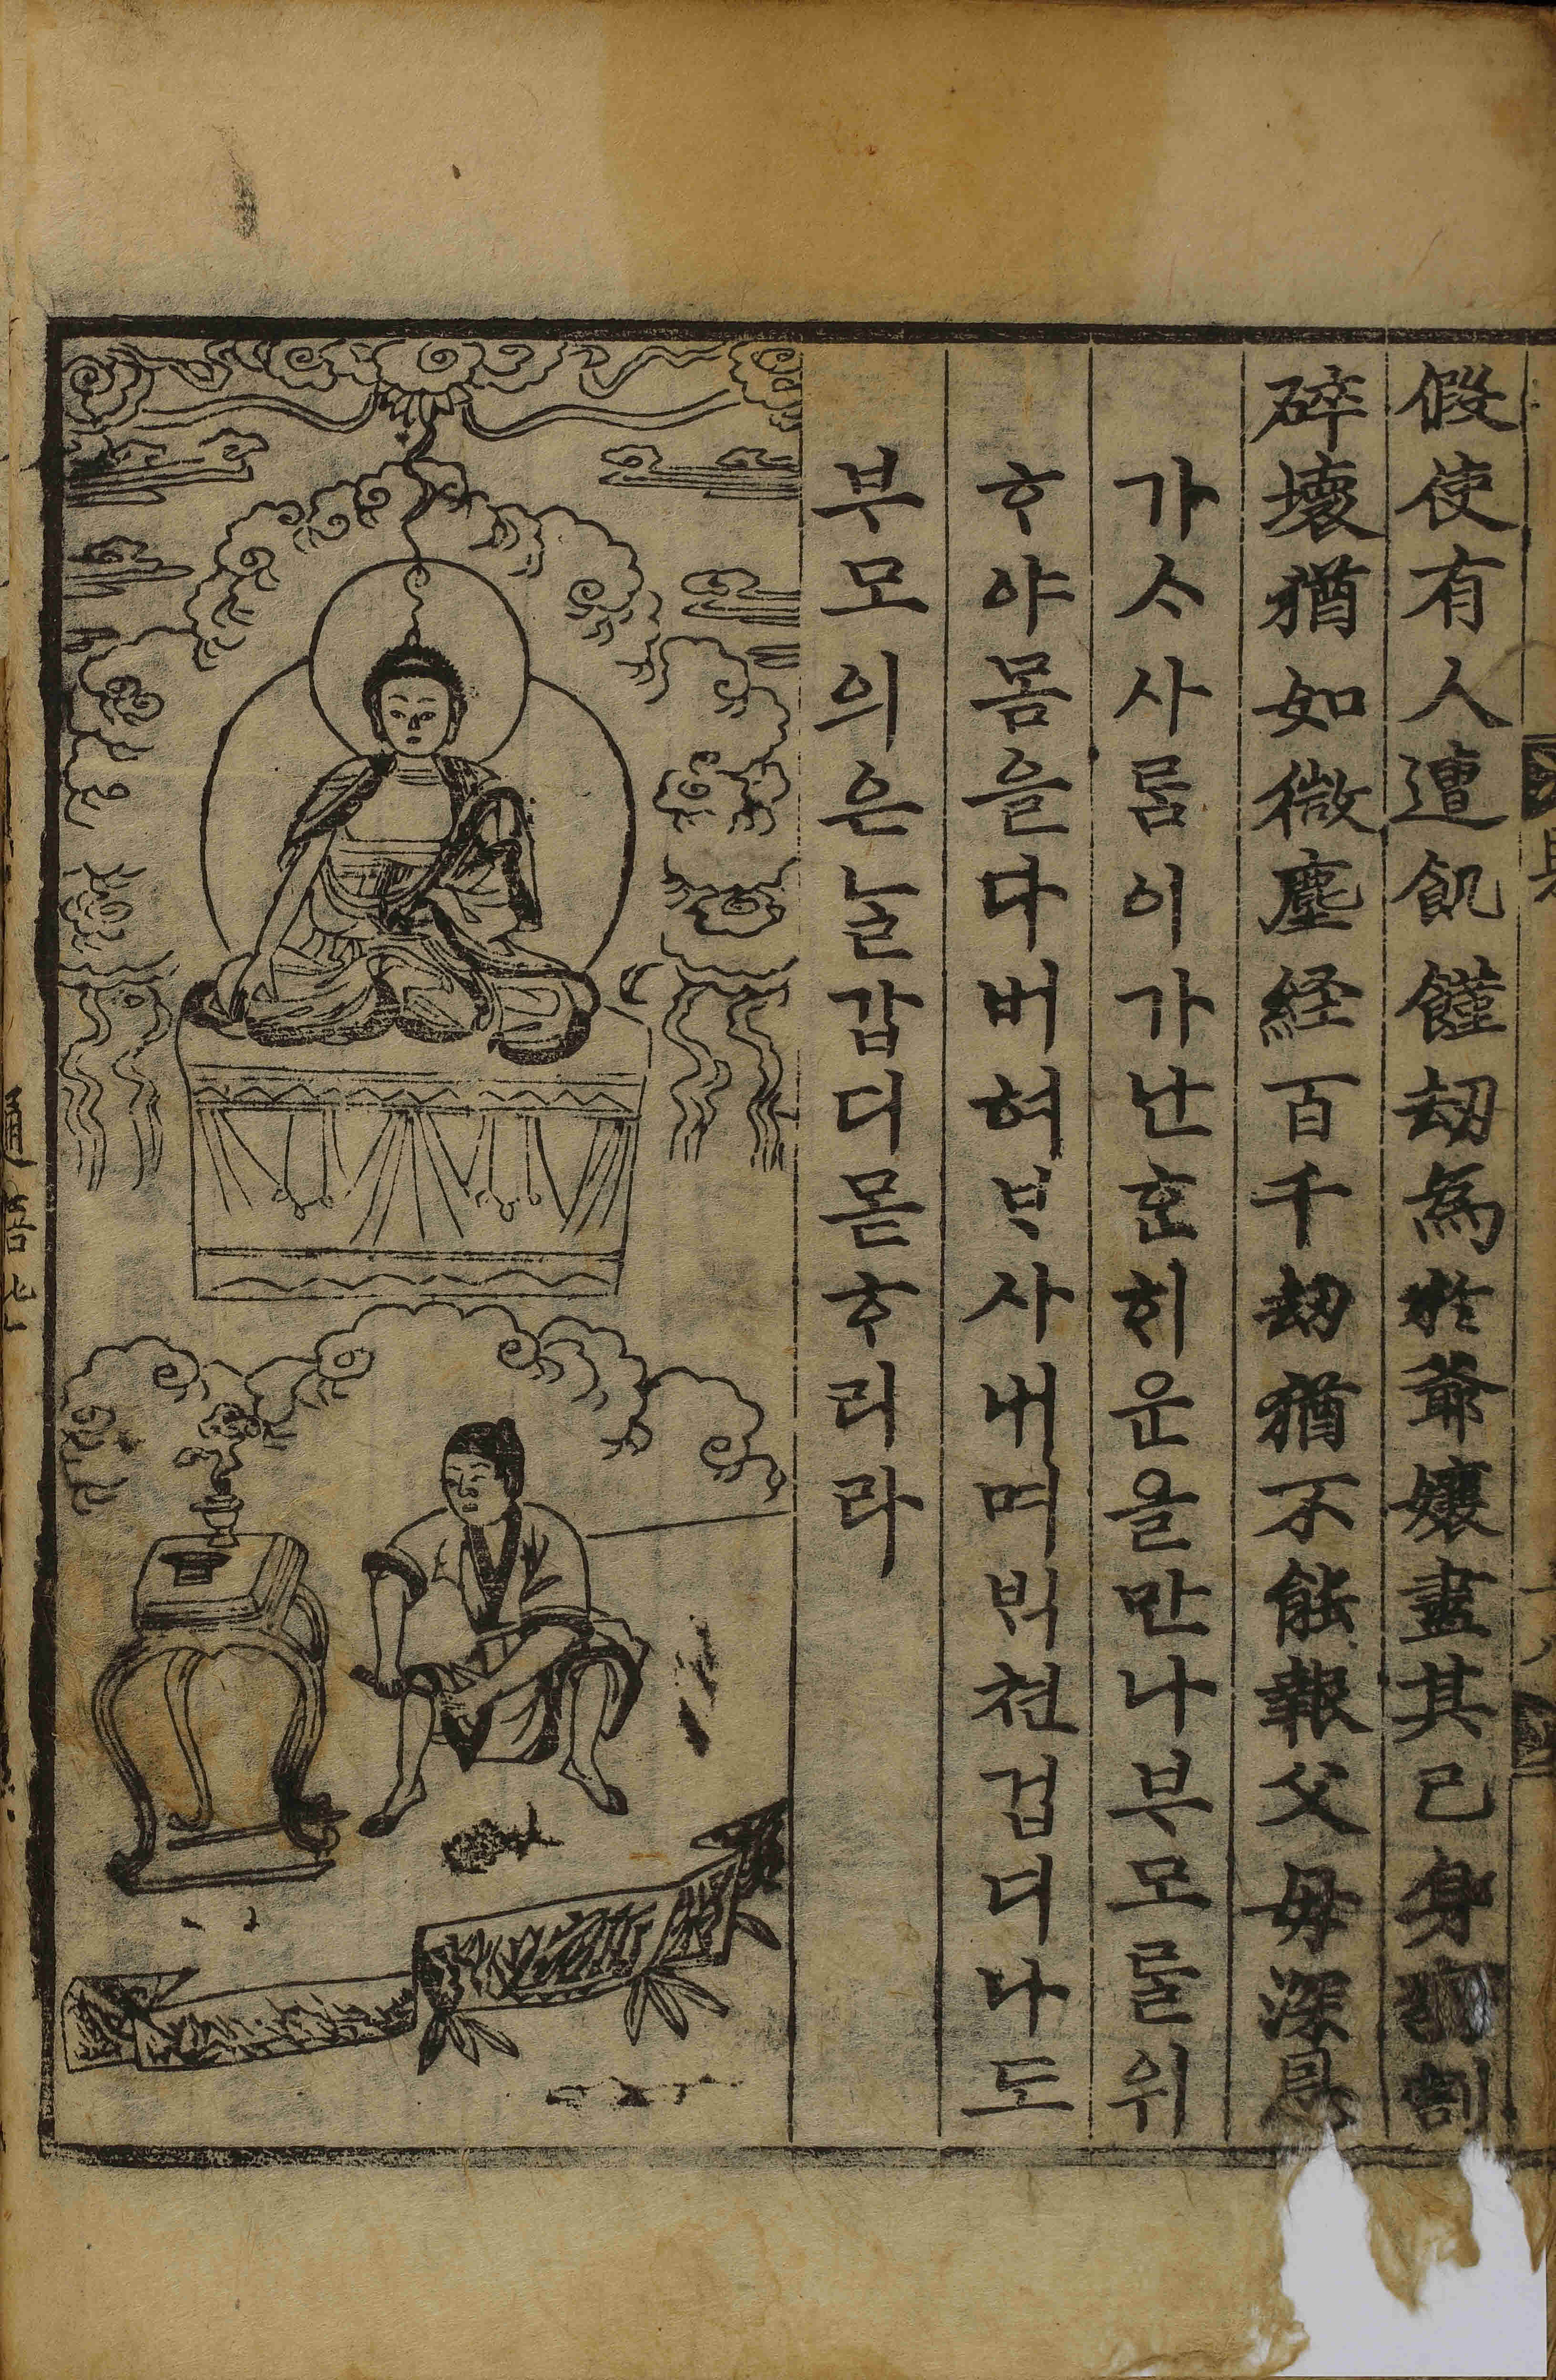 假使有人遭飢饉刼為於爺孃盡其己身割
碎壞猶如微塵経百千刼猶不能報父母深恩
가ᄉᆞ사ᄅᆞᆷ이가난ᄒᆞᆫ히운을만나부모ᄅᆞᆯ위
ᄒᆞ야몸을다버혀ᄇᆞ사내며ᄇᆡᆨ쳔겁디나도
부모의은ᄂᆞᆯ갑디몯ᄒᆞ리라